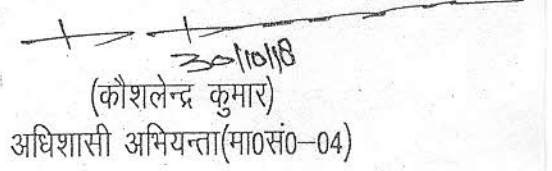 30/10/18
(कौशलेन्द्र कुमार)
अधिशासी अभियन्ता(मा0सं0-04)